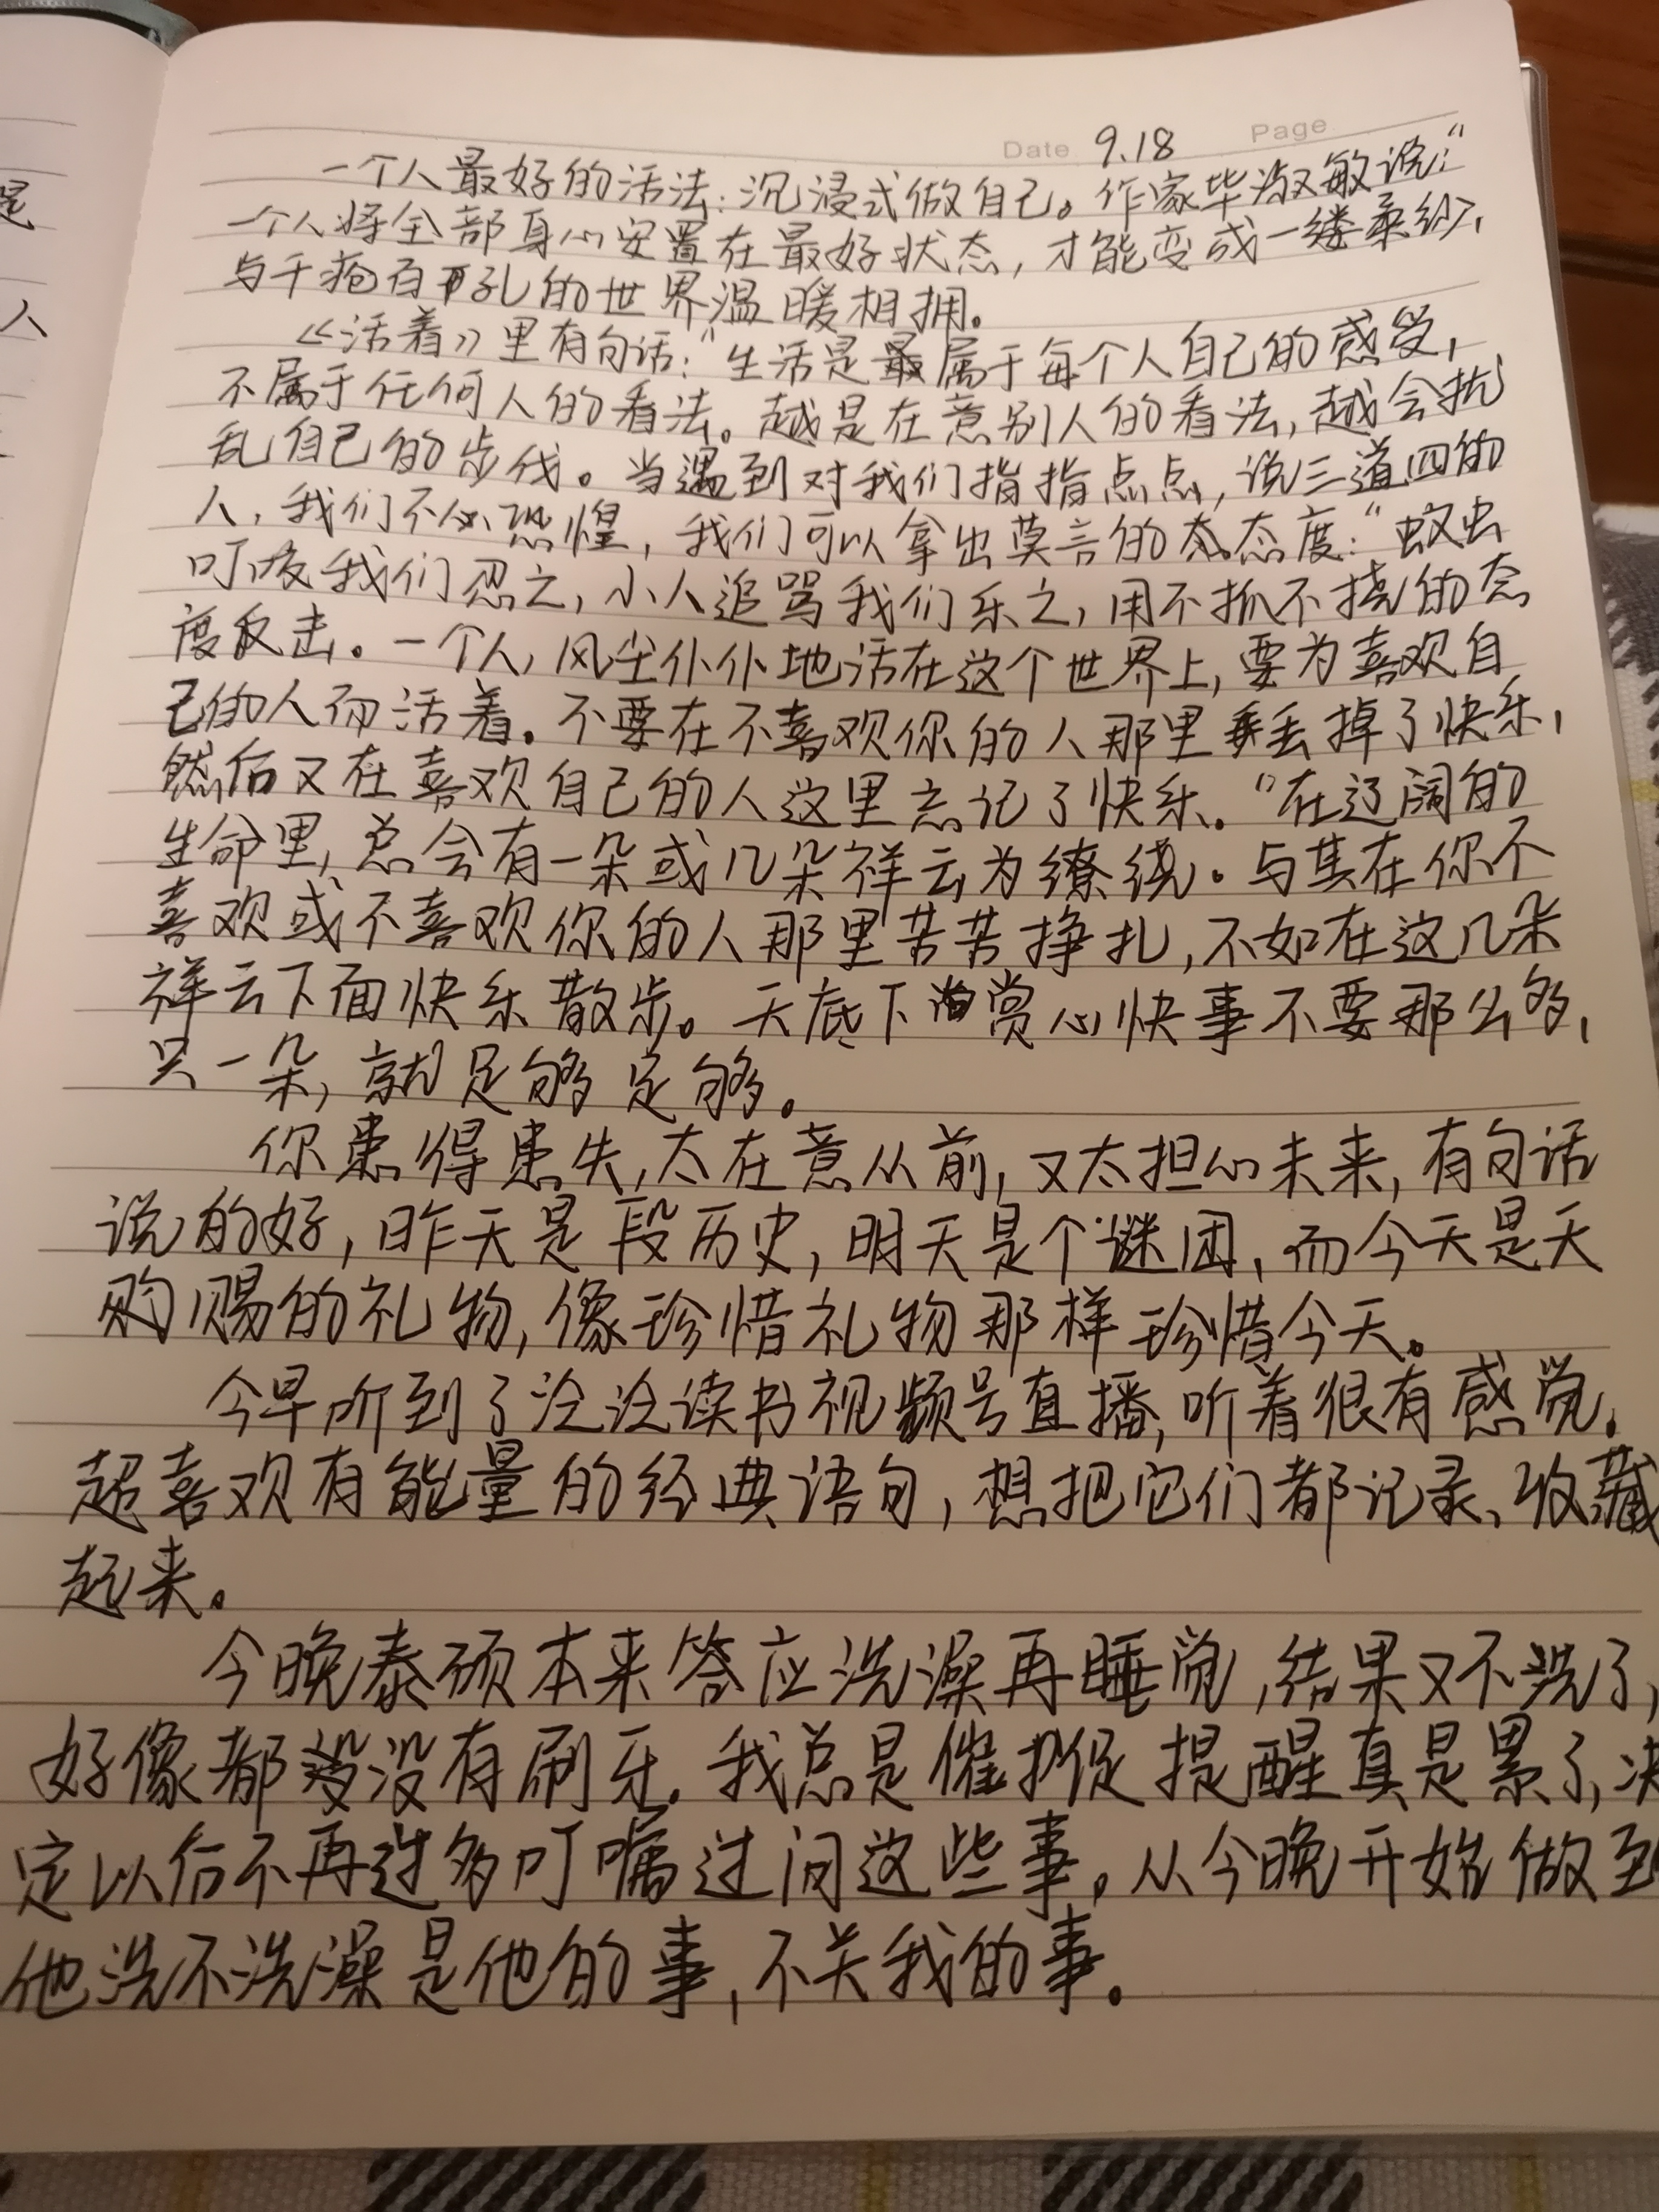 Date 9.18 Page
一个人最好的活法:沉浸式做自己。作家毕淑敏说:"
一个人将全部身心安置在最好状态,才能变成一缕柔纱,
与千疮百孔的世界温暖相拥。
《活着》里有句话:"生活是最属于每个人自己的感受,
不属于任何人的看法。越是在意别人的看法,越会扰
乱自己的步伐。当遇到对我们指指点点,说三道四的
人,我们不必恐惶,我们可以拿出莫言的态度:"蚊虫
叮咬我们忍之,小人追骂我们乐之,用不抓不挠的态
度反击。一个人,风尘仆仆地活在这个世界上,要为喜欢自
己的人而活着。不要在不喜欢你的人那里丢掉了快乐,
然后又在喜欢自己的人这里忘记了快乐。"在辽阔的
生命里,总会有一朵或几朵祥云为缭绕。与其在你不
喜欢或不喜欢你的人那里苦苦挣扎,不如在这几朵
祥云下面快乐散步。天底下赏心快事不要那么多,
只一朵,就足够足够。
你患得患失,太在意从前,又太担心未来,有句话
说的好,昨天是段历史,明天是个谜团,而今天是天
赐的礼物,像珍惜礼物那样珍惜今天。
今早听到了泠泠读书视频号直播,听着很有感觉。
超喜欢有能量的经典语句,想把它们都记录、收藏
起来。
今晚泰硕本来答应洗澡再睡觉,结果又不洗了,
好像都没有刷牙。我总是催促提醒真是累了,决
定以后不再过多叮嘱过问这些事。从今晚开始做到
他洗不洗澡是他的事,不关我的事。
是
人